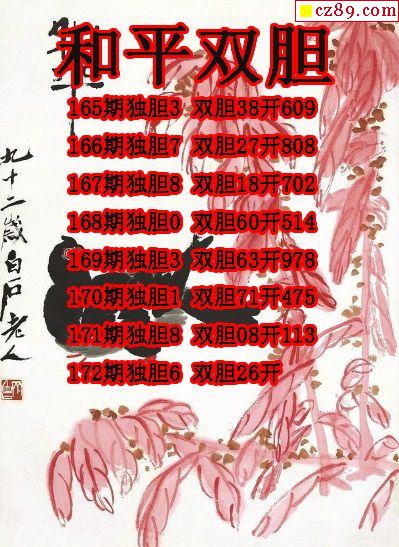 cz89.com
和平双胆
165期独胆3 双胆38开609
166期独胆7 双胆27开808
167期独胆8 双胆18开702
168期独胆0 双胆60开514
169期独胆3 双胆63开978
170期独胆1 双胆71开475
171期独胆8 双胆08开113
172期独胆6 双胆26开
九十二岁白石老人